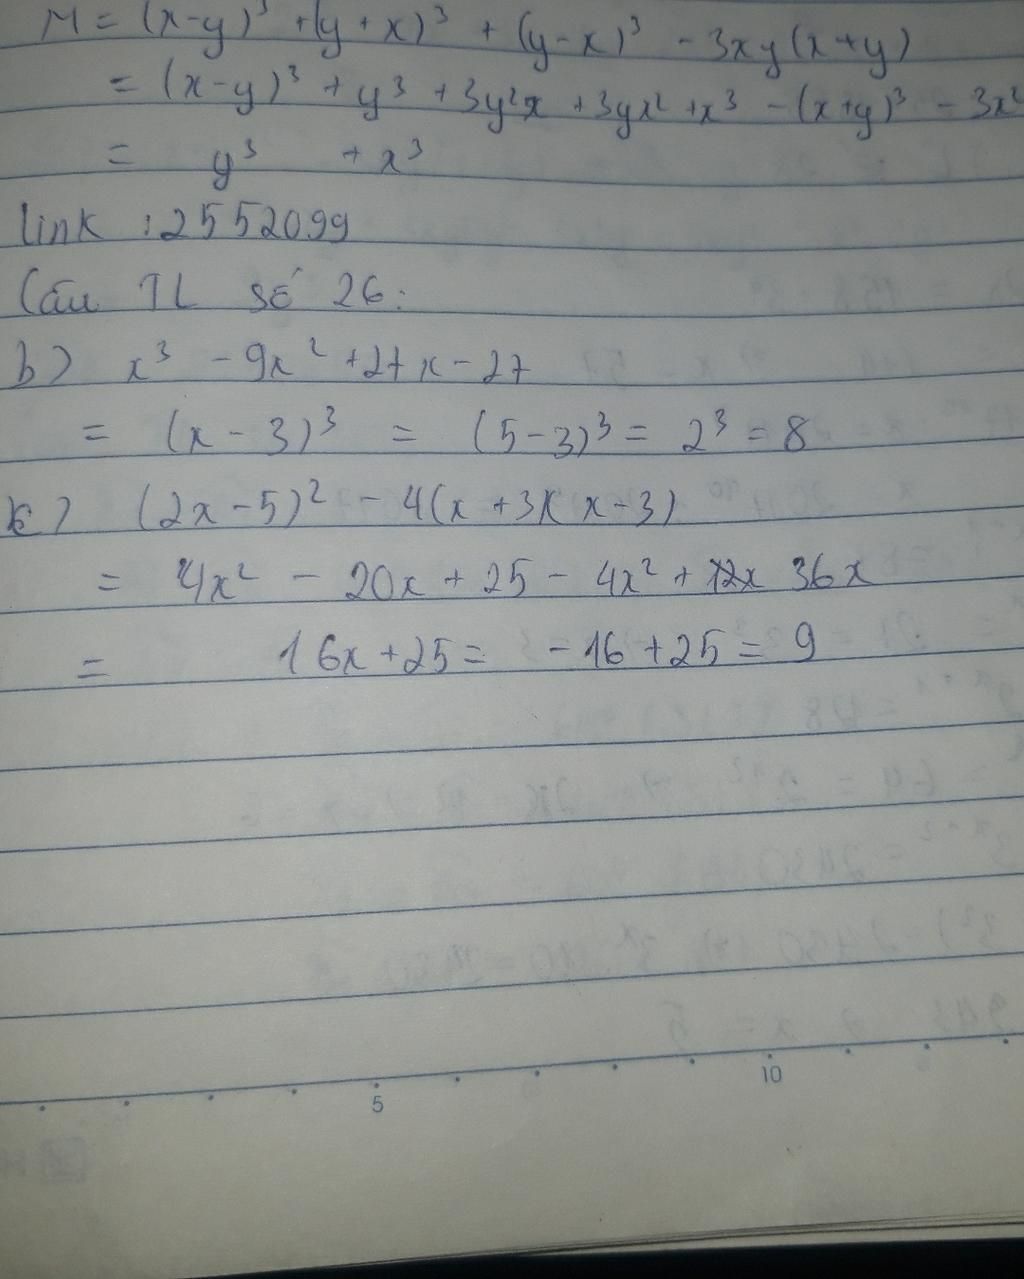 M = (x-y)³ + (y+x)³ + (y-x)³ - 3xy(x+y)
= (x-y)³ + y³ + 3y²x + 3yx² + x³ - (x+y)³ - 3x²
= y³ + x³
link : 2552099
Câu TL số 26:
b) x³ - 9x² + 27x - 27
= (x - 3)³ = (5-3)³ = 2³ = 8
c) (2x-5)² - 4(x+3)(x-3)
= 4x² - 20x + 25 - 4x² + 36x
= 16x + 25 = -16 + 25 = 9
5 10